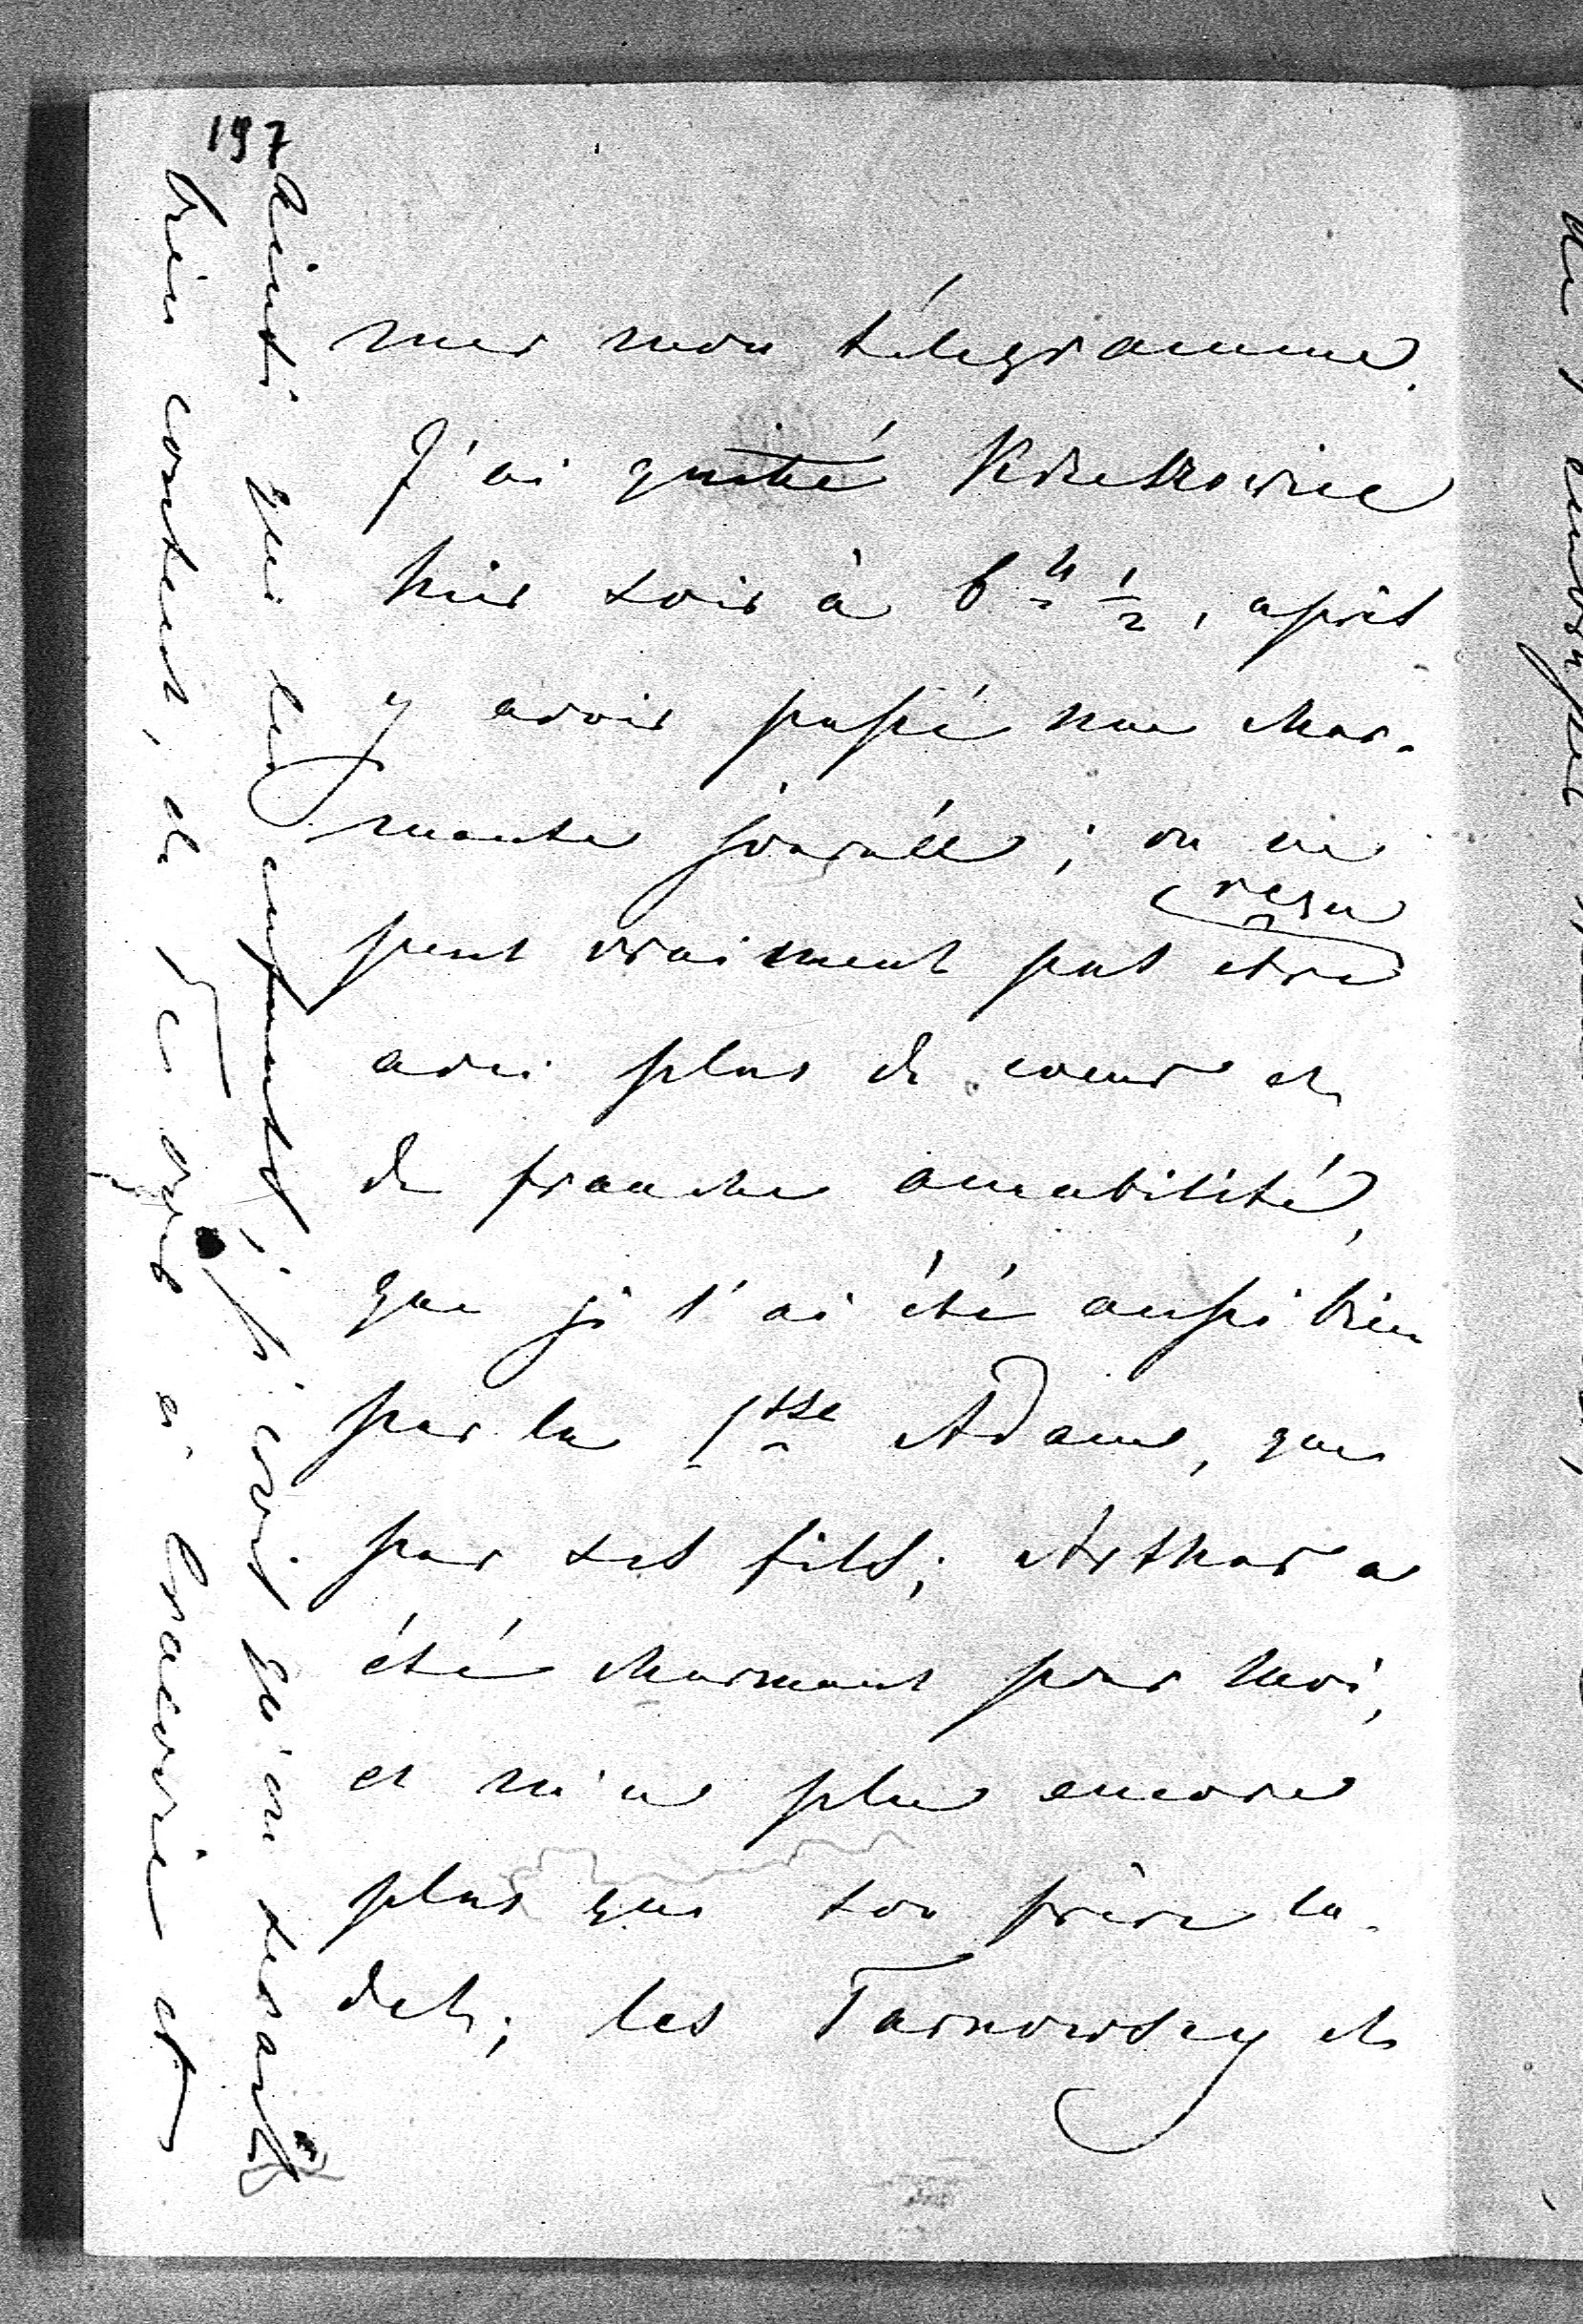 197
mer mon télegramme.
J'ai quitté Krzeszowice
hier soir à 6 h ½, après
y avoir passé une char-
mante journée; on ne
peut vraiment pas etre
reçu
avec plus de coeur et
de franche amabilité,
que je l'ai été aussi bien
par la Ctsse Adam, que
par ses fils; Arthur a
été charmant pour moi,
et m'a plu encore
plus que son frère ca-
det; les Tarnowsky et
ainsi que les enfants; je crois qu'on serait
bien content, de Te voir à Cracovie et